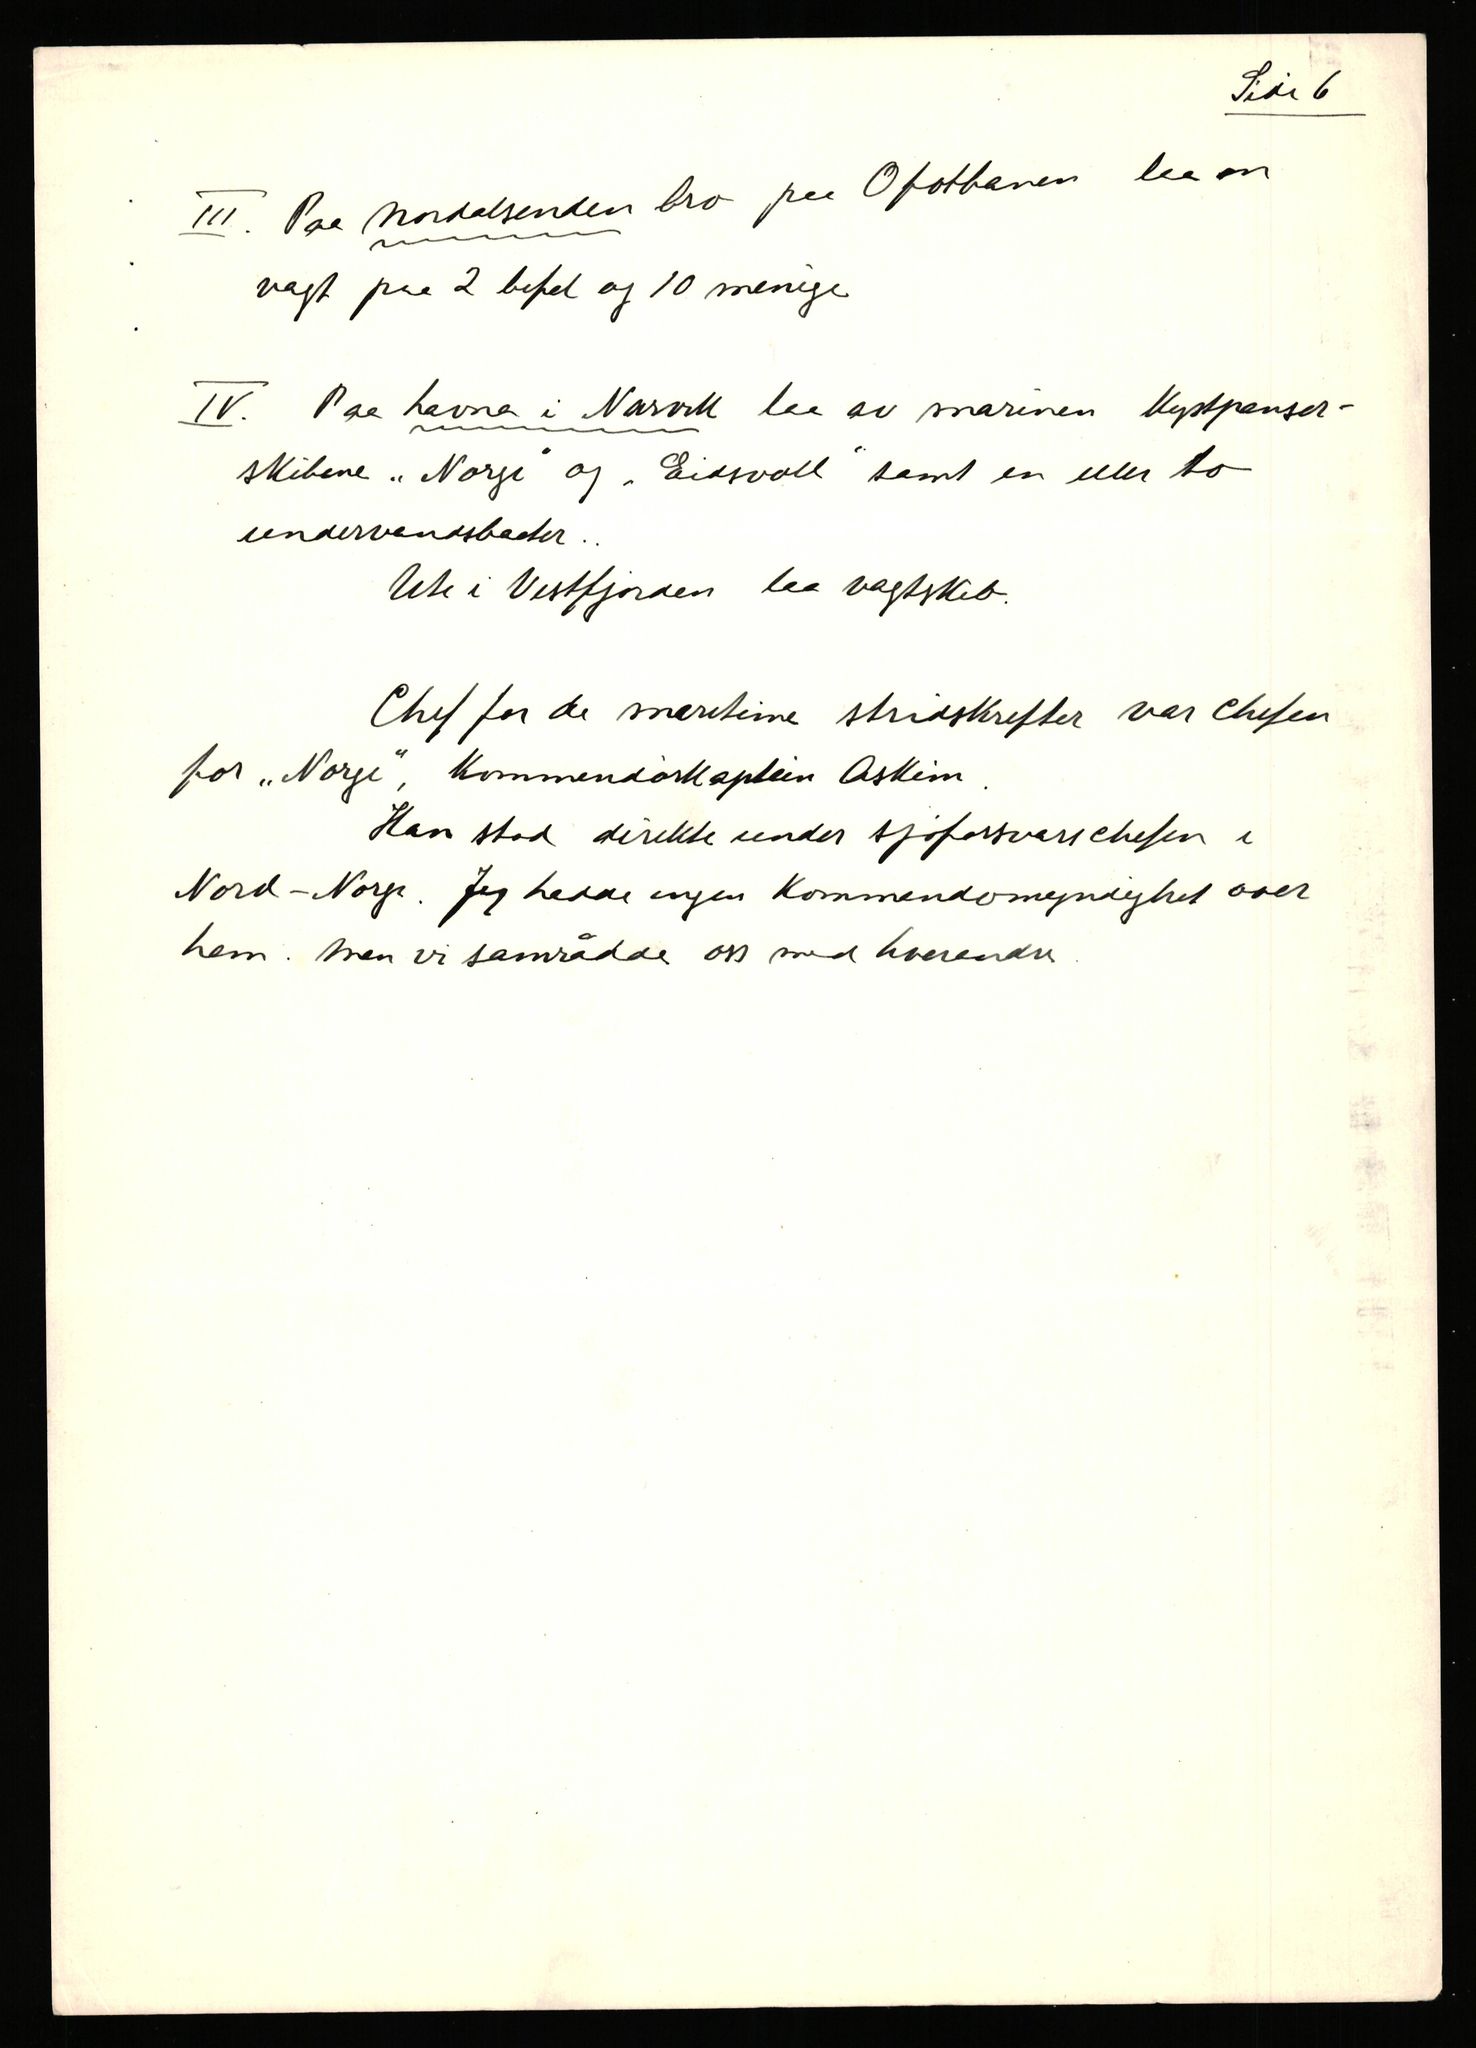 Side 6
III. Paa Nordalsenden bro paa Ofotbanen laa en
vagt paa 2 befal og 10 menige
IV. Paa havna i Narvik laa av marinen Kystpanser-
skibene „Norge“ og „Eidsvoll“ samt en eller to
undervandsbaater..
Ute i Vestfjorden laa vagtskib.
Chef for de maritime stridskrefter var chefen
for „Norge“, Kommandørkaptein Askim.
Han stod direkte under sjøforsvarschefen i
Nord-Norge. Jeg hadde ingen Kommandomyndighet over
ham. Men vi samrådde oss med hverandre.